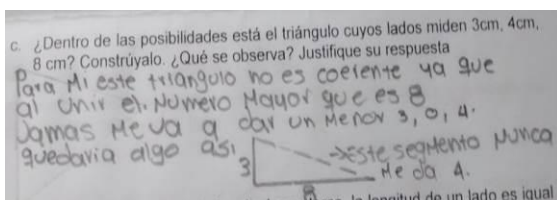 c. ¿Dentro de las posibilidades está el triángulo cuyos lados miden 3cm, 4cm,
8 cm? Constrúyalo. ¿Qué se observa? Justifique su respuesta
Para Mi este triangulo no es coerente ya que
al unir el. Numero Mayor que es 8
Jamas Me va a dar un Menor 3, o, 4.
quedaria algo asi
este segmento Nunca
Me da 4.
3
8
la longitud de un lado es igual